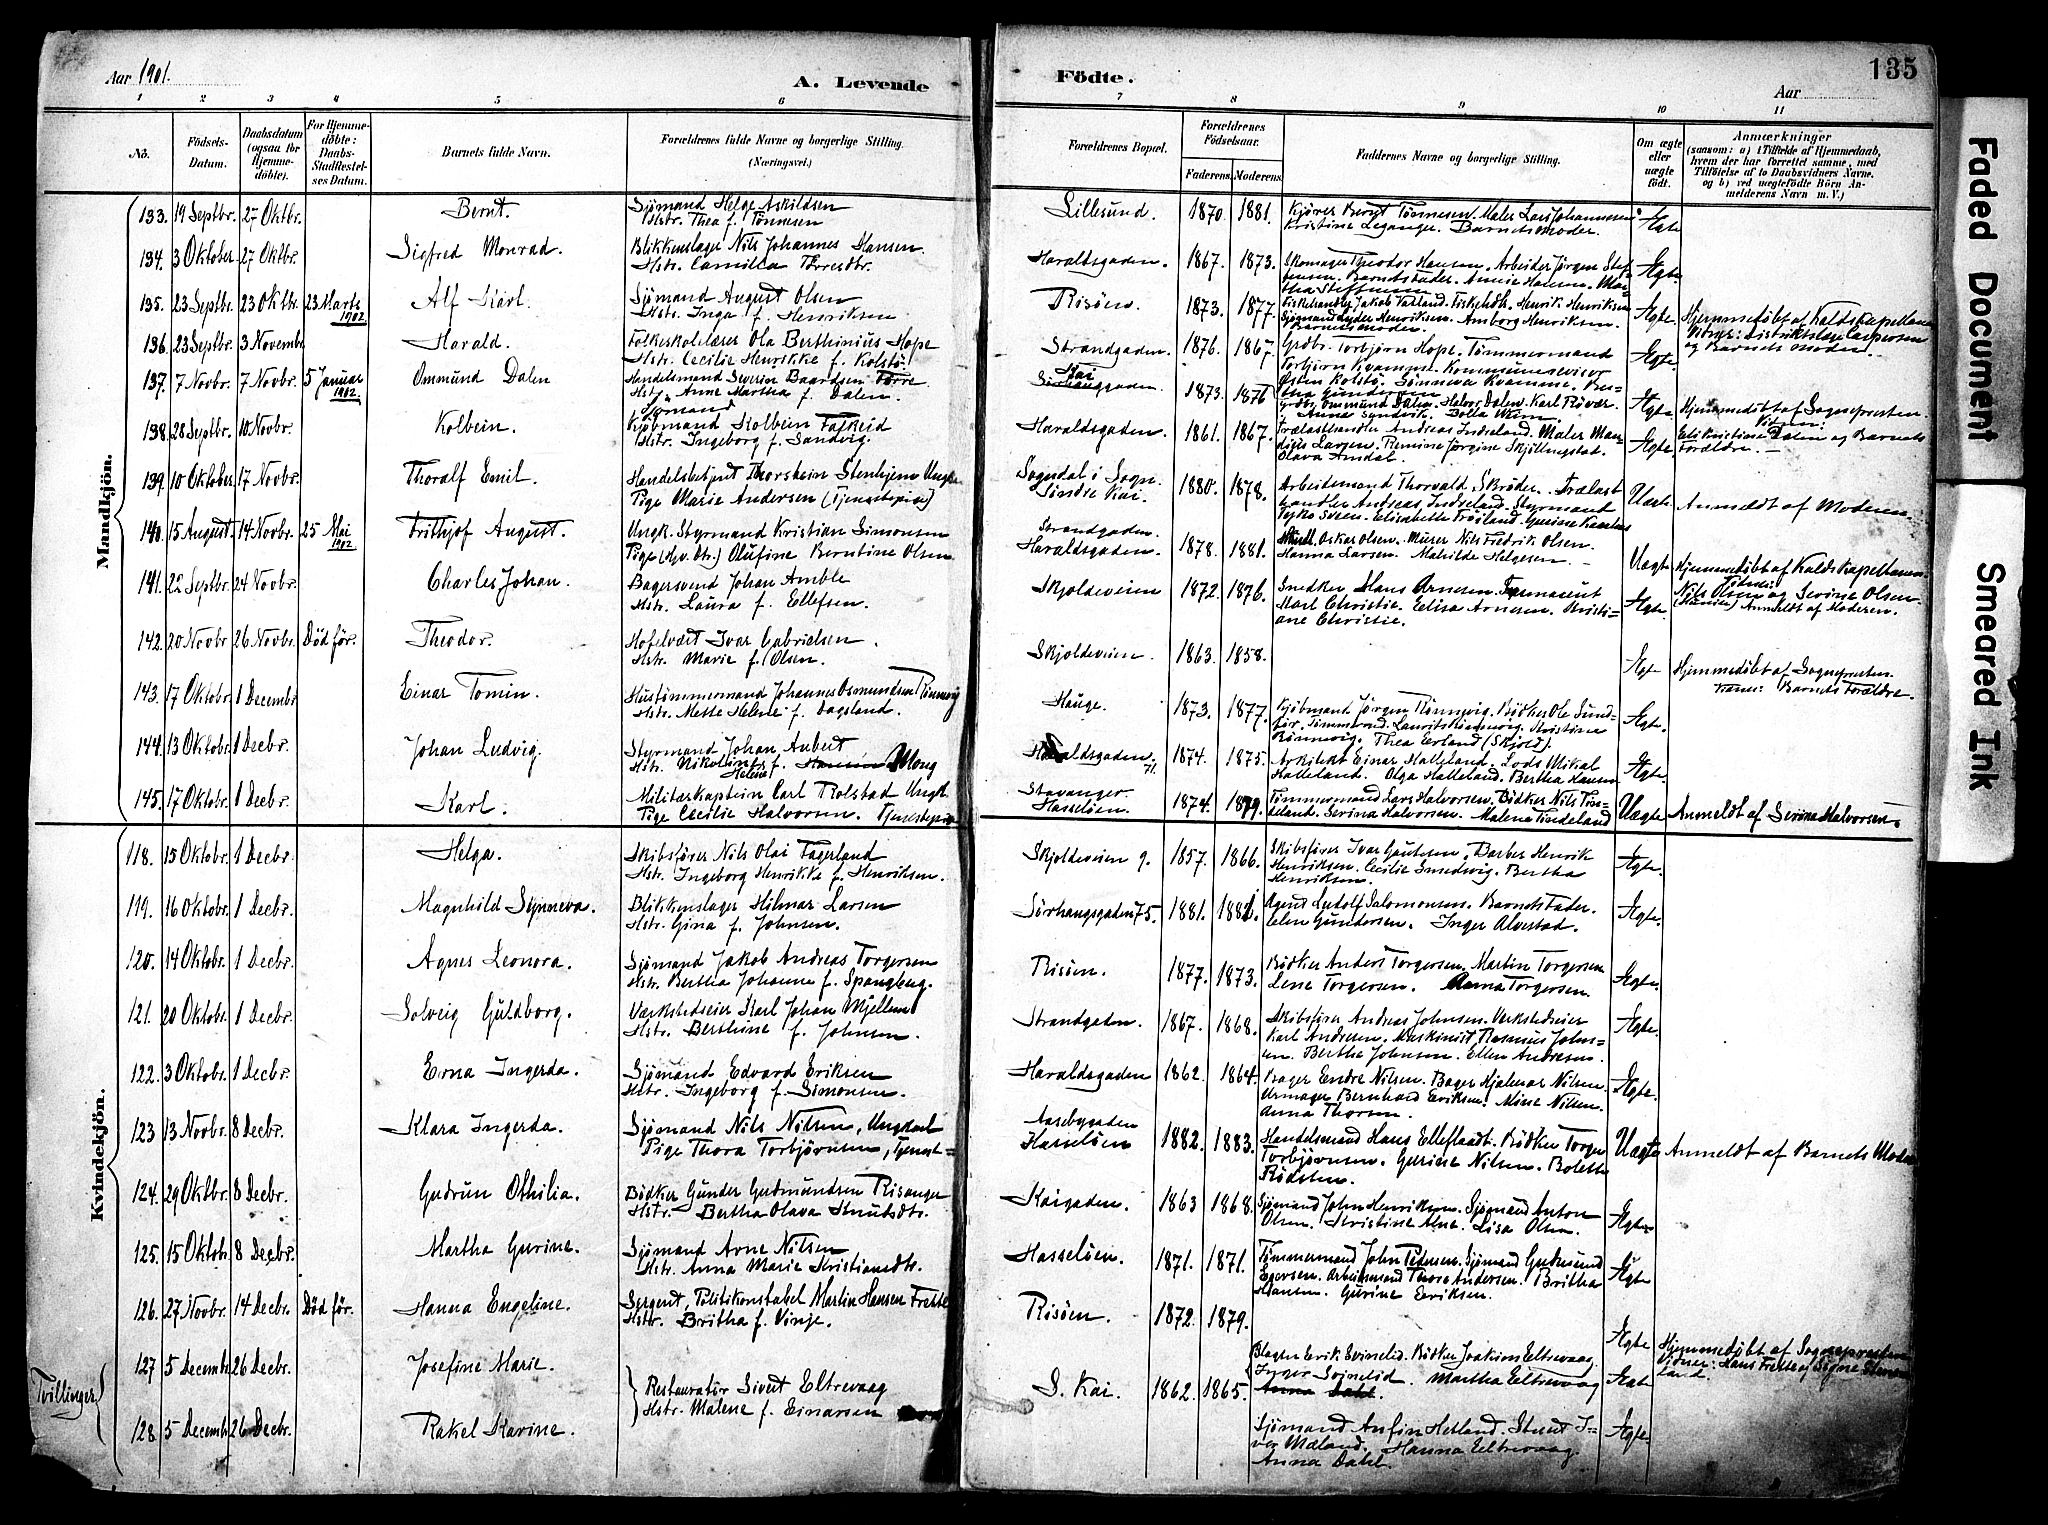 Aar 1901.
A. Levende
Födte.
135
Aar
1 2 3 4 5 6 7 8 9 10 11
Nô.
Födsels-Datum.
Daabsdatum (ogsaa for Hjemme-döbte).
For Hjemme-döbte: Daabs-Stadfæstel-ses Datum.
Barnets fulde Navn.
Forældrenes fulde Navne og borgerlige Stilling. (Næringsvei.)
Forældrenes Bopæl.
Forældrenes Födselsaar.
Faderens. Moderens.
Faddernes Navne og borgerlige Stilling.
Om ægte eller uægte födt.
Anmærkninger (saasom: a) i Tilfælde af Hjemmedaab, hvem der har forrettet samme, med Tilföielse af to Daabsvidners Navne. og b) ved uægtefödte Börn Anmelderens Navn m. V.)
Mandkjön.
133. 19 Septbr. 27 Oktbr. Bernt. Sjömand Helge Askildsen
Hstr. Thea f. Tönnesen Lillesund. 1870. 1881. Kjörer Bernt Tönnesen. Maler Lars Johannesen
Kristine Leganger. Barnets Moder. Ægte
134. 3 Oktober 27 Oktbr. Sigfred Monrad. Blikkenslager Nils Johannes Hansen
Hstr. Camilla Torresdtr. Haraldsgaden. 1867. 1873. Skomager Theodor Hansen. Arbeider Jörgen Stef-
fensen. Barnets Fader. Ægte
135. 23 Septbr. 23 Oktbr. 23 Marts 1902 Alf Karl. Sjömand August Olsen
Hstr. Inga f. Henriksen Risöen. 1873. 1877. Henrik Henriksen
Sjömand Peder Henriksen. Amborg Henriksen.
Barnets Moder. Ægte Hjemmedöbt af Kaldskapellanen
136. 23 Septbr. 3 Novembr Harald. Folkeskolelærer Ola Berthinius Hope
Hstr. Cecilie Henrikke f. Kolstö. Strandgaden. 1876. 1867. Grdbr. Torbjörn Hope. Tömmermand
Torbjörn Kvamme. Kommunereviser
Östen Kolstö. Synneva Kvamme. Ægte og Barnets Moder.
137. 7 Novbr. 7 Novbr. 5 Januar 1902. Ommund Dalen Handelsmand Severin Baardsen
Hstr. Anne Martha f. Dalen. 1873. 1876 Ommund Dalen. Halvor Dalen. Karl Rövær. Ægte Hjemmedöbt af Sognepresten
138. 28 Septbr. 10 Novbr. Kolbein. Kjöbmand Kolbein Falkeid
Hstr. Ingeborg f. Sandvig. Haraldsgaden. 1861. 1867. Trælasthandler Andreas Indreland. Maler Man-
dius Larsen. Jorgine Skjöllingstad.
Olava Amdal. Ægte Dalen og Barnets
Forældre.
139. 10 Oktober 17 Novbr. Thoralf Emil. Handelsbetjent Thorstein Stenhjem Ungk.
Pige Marie Andersen (Tjenestepige) Sogndal i Sogn.
Söndre Kai. 1880. 1878. Arbeidsmand Thorvald Skröder. Trælast
handler Andreas Indreland. Styrmand
Elisabeth Fröiland. Uægte Anmeldt af Moderen.
140. 15 August. 14 Novbr. 25 Mai 1902 Frithjof August. Ungk. Styrmand Kristian Simonsen
Pige Olufine Berntine Olsen Strandgaden.
Haraldsgaden. 1878. 1881. Oskar Olsen. Murer Nils Fredrik Olsen.
Hanna Larsen. Mathilde Helgesen. Uægte Hjemmedöbt af Kaldskapellanen.
141. 22 Septbr. 24 Novbr. Charles Johan. Bagersvend Johan Amble
Hstr. Laura f. Ellefsen. Skjoldeveien 1872. 1876. Snedker Hans Arnesen.
Karl Christie. Elisa Arnesen. Kristi-
ane Christie. Ægte. Nils Olsen og Sevine Olsen
Anmeldt af Moderen.
142. 20 Novbr 26 Novbr. Död för. Theodor. Hotelvært Ivar Gabrielsen
Hstr. Marie f. Olsen. Skjoldeveien. 1863. 1858. Ægte Hjemmedöbt af Sognepresten.
Barnets Forældre.
143. 17 Oktobr. 1 Decembr Einar Tomin. Hustömmermand Johannes Osmundsen Rönnevig
Hstr. Mette Helene f. Dagsland. Hauge. 1873. 1877. Kjöbmand Jörgen Rönnevig. Bödker Ole Sund-
för. Laurits Rönnevig. Kristine
Rönnevig. Thea Erland (Skjold). Ægte.
144. 13 Oktobr. 1 Decbr. Johan Ludvig. Styrmand Johan Aubert
Hstr. Nikoline Helene f. Mong Haraldsgaden 71. 1874. 1875. Arkitekt Einar Halleland. Lods Mikal
Halleland. Olga Halleland. Bertha Hansen Ægte.
145. 17 Oktobr. 1 Decbr. Karl. Militærkaptein Carl Rolstad Ungk.
Pige Cecilie Halvorsen. Tjenestepige Stavanger
Hasselöen. 1874. 1879. Tömmermand Lars Halvorsen. Bödker Nils Tinde-
land. Serina Halvorsen. Malena Tindeland Uægte Anmeldt af Serina Halvorsen.
Kvindekjön.
118. 15 Oktobr. 1 Decbr. Helga. Skibsförer Nils Olai Fagerland
Hstr. Ingeborg Henrikke f. Henriksen. Skjoldeveien 9. 1857. 1866. Skibsförer Ivar Gautesen. Barber Henrik
Henriksen. Cecilie Smedsvig. Bertha
Henriksen. Ægte.
119. 16 Oktobr. 1 Decbr. Magnhild Synneva. Blikkenslager Hilmar Larsen
Hstr. Gina f. Johnsen. Sörhaugsgaden 75. 1881. 1881. Agent Ludolf Salomonsen. Barnets Fader.
Elen Gundersen. Inger Alvestad. Ægte.
120. 14 Oktobr. 1 Decbr. Agnes Leonora. Sjömand Jakob Andreas Torgersen
Hstr. Bertha Johanne f. Spangberg. Risöen. 1877. 1873. Bödker Anders Torgersen. Martin Torgersen
Lene Torgersen. Anna Torgersen. Ægte.
121. 20 Oktobr. 1 Decbr. Solveig Guldborg. Værkstedseier Karl Johan Mjellem
Hstr. Berthine f. Johnsen. Strandgaden. 1867. 1868. Skibsförer Andreas Johnsen. Værkstedseier
Karl Andresen. Maskinist Rasmus Johns-
en. Bertha Johnsen. Ellen Andresen. Ægte.
122. 3 Oktobr. 1 Decbr. Erna Ingerda. Sjömand Edvard Eriksen
Hstr. Ingeborg f. Simonsen. Haraldsgaden 1862. 1864. Bager Endre Nilsen. Bager Hjalmar Nilsen
Urmager Bernhard Eriksen. Mine Nilsen.
Anna Thorsen. Ægte.
123 13 Novbr. 8 Decbr. Klara Ingerda. Sjömand Nils Nilsen, Ungkarl
Pige Thora Torbjörnsen, Tjenest= Aasebygaden
Hasselöen 1882. 1883. Handelsmand Hans Elleflaadt. Bödker Torger
Torbjörnsen. Gurine Nilsen. Bolette
Rödsten. Uægte Anmeldt af Barnets Moder
124. 29 Oktbr. 8 Decbr. Gudrun Othilia. Bödker Gunder Gudmundsen Risanger
Hstr. Bertha Olava Knudsdtr. Kaigaden. 1863 1868. Sjömand John Henriksen. Sjömand Anton
Olsen. Kristine Aase. Lisa Olsen. Ægte
125. 15 Oktobr. 8 Decbr. Martha Gurine. Sjömand Arne Nilsen
Hstr. Anna Marie Kristiansdtr. Hasselöen. 1871. 1871. Tömmermand John Pedersen. Sjömand Gudmund
Sjursen. Arbeidsmand Thore Andersen. Britha
Hansen. Gurine Eriksen. Ægte
126. 27 Novbr. 14 Decbr. Död för. Hanna Engeline. Sergent, Politikonstabel Martin Hansen Frette
Hstr. Britha f. Vinje. Risöen. 1872. 1879. Ægte Hjemmedöbt af Sognepresten
Vidner: Hans Frette og Signe
land.
Tvillinger
127 5 Decembr 26 Decbr. Josefine Marie. Restauratör Sivert Eltrevaag
Hstr. Malene f. Einarsen S. Kai. 1862. 1865. Erik Svinelid. Bödker Joakim Eltrevaag.
Svinelid. Martha Eltrevaag
Anna Dahl. Ægte
128. 5 Decembr 26 Decbr. Rakel Karine. Sjömand Anfin Hetland. Stuert I-
ver Mæland. Hanna Eltrevaag.
Anna Dahl. Ægte.
Faded Document
Smeared Ink